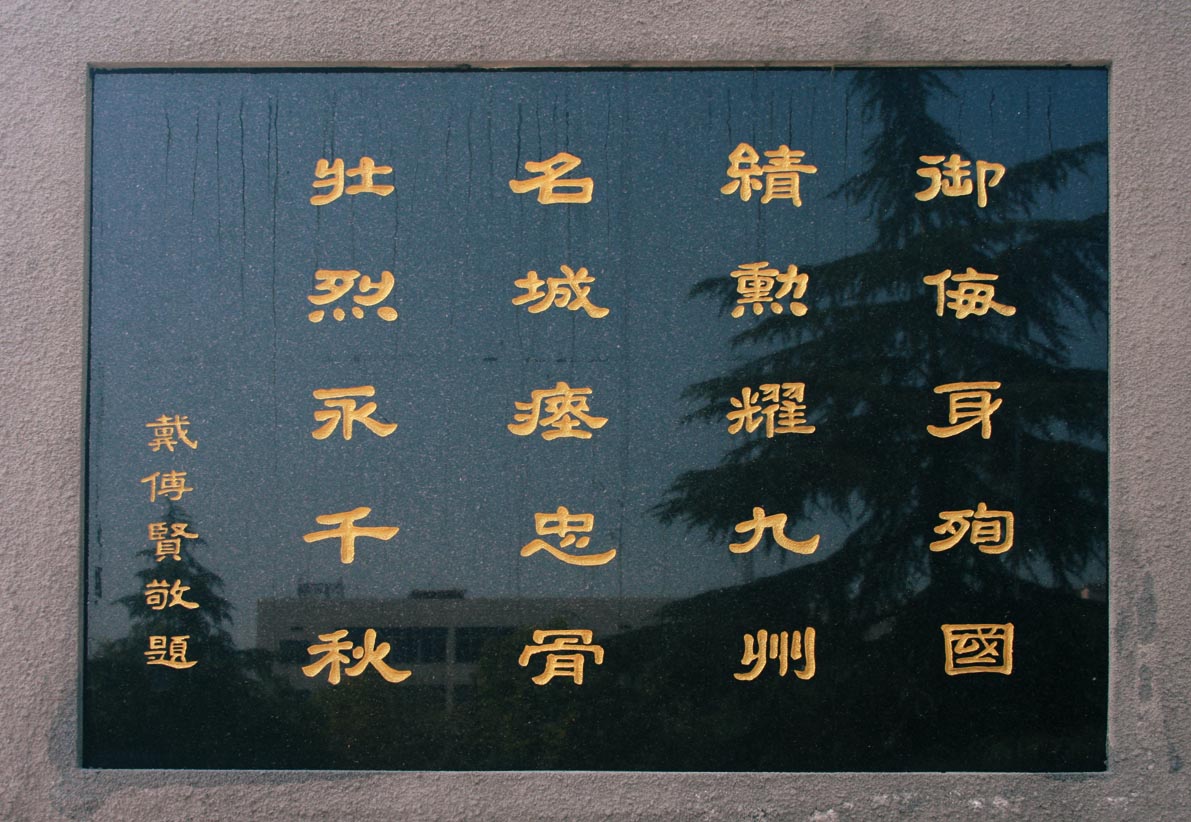 御侮身殉國
績勳耀九州
名城瘞忠骨
壯烈永千秋
戴傅賢敬題